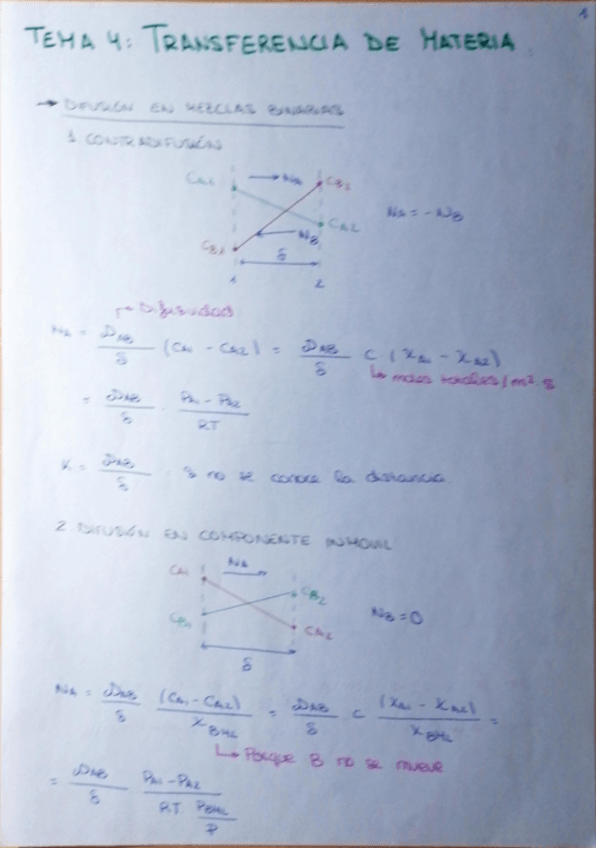 1
TEMA 4: TRANSFERENCIA DE MATERIA
→ DIFUSIÓN EN MEZCLAS BINARIAS
1. CONTRADIFUSIÓN
CA1 → NA CB2
CA2 NA = - NB
← NB
CB1 δ
1 2
Difusividad
NA = DAB/δ (CA1 - CA2) = DAB/δ C (XA1 - XA2)
↳ moles totales/m².s
= DAB/δ · PA1 - PA2/RT
K = DAB/δ : si no se conoce la distancia
2. DIFUSIÓN EN COMPONENTE INMOVIL
CA1 NA → CB2
CB1 CA2 NB = 0
δ
NA = DAB/δ (CA1 - CA2)/XBML = DAB/δ C (XA1 - XA2)/XBML =
↳ Porque B no se mueve
= DAB/δ PA1 - PA2/RT PBML/P